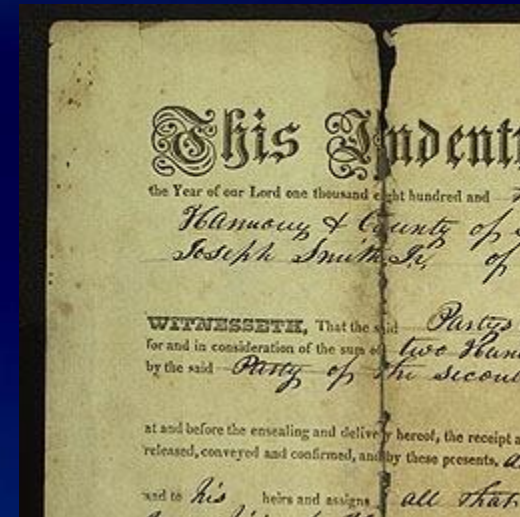 This Indent
the Year of our Lord one thousand eight hundred and
Harmony & County of
Joseph Smith Jr. of
WITNESSETH, That the said Partys
for and in consideration of the sum of two Hun
by the said Party of the second
at and before the ensealing and delivery hereof, the receipt
released, conveyed and confirmed, and by these presents,
and to his heirs and assigns all that